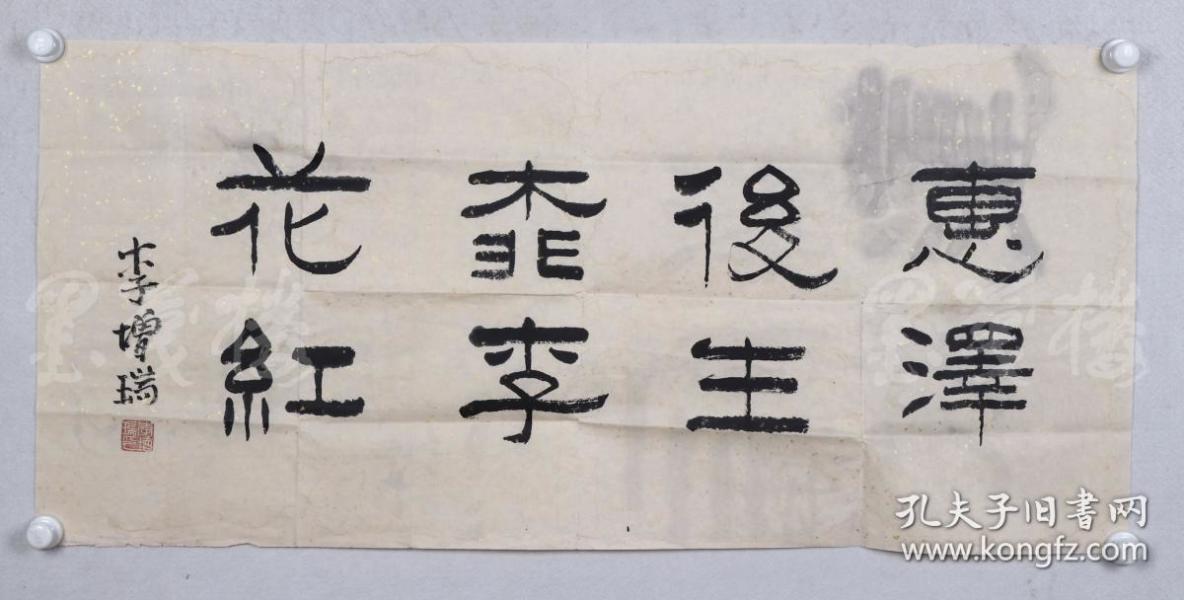 惠澤
後生
桃李
花紅
李增瑞
墨笺楼
墨笺楼
孔夫子旧書网
www.kongfz.com